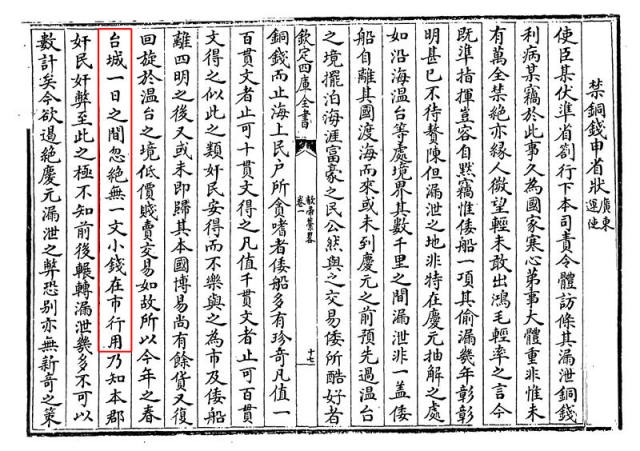 禁銅錢申省狀廣東運使
使臣某伏凖省劄行下本司責令體訪條具漏泄銅錢
利病某竊於此事久為國家寒心第事大體重非惟未
有萬全禁絶亦縁人微望輕未敢出鴻毛輕率之言今
既凖指揮豈容自黙竊惟倭船一項其偷漏幾年彰彰
明甚已不待贅陳但漏泄之地非特在慶元抽解之處
如沿海温台等處境界其數千里之間漏泄非一蓋倭
船自離其國渡海而來或未到慶元之前預先過温台
之境擺泊海涯富豪之民公然與之交易倭所酷好者
欽定四庫全書
敝帚藁畧
卷一
十七
銅錢而止海上民户所貪嗜者倭船多有珍奇凡值一
百貫文者止可十貫文得之凡值千貫文者止可百貫
文得之似此之類奸民安得而不樂與之為市及倭船
離四明之後又或未即歸其本國博易尚有餘貨又復
回旋於温台之境低價賤賣交易如故所以今年之春
台城一日之間忽絶無一文小錢在市行用乃知本郡
奸民奸弊至此之極不知前後輾轉漏泄幾多不可以
數計矣今欲遏絶慶元漏泄之弊恐别亦無新竒之策